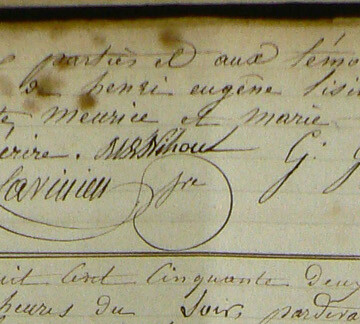 parties et aux témo
de henri eugène
te meurice et marie
érire. G: G
Savinien fre
uit cent cinquante deux
heures du Soir pardeva